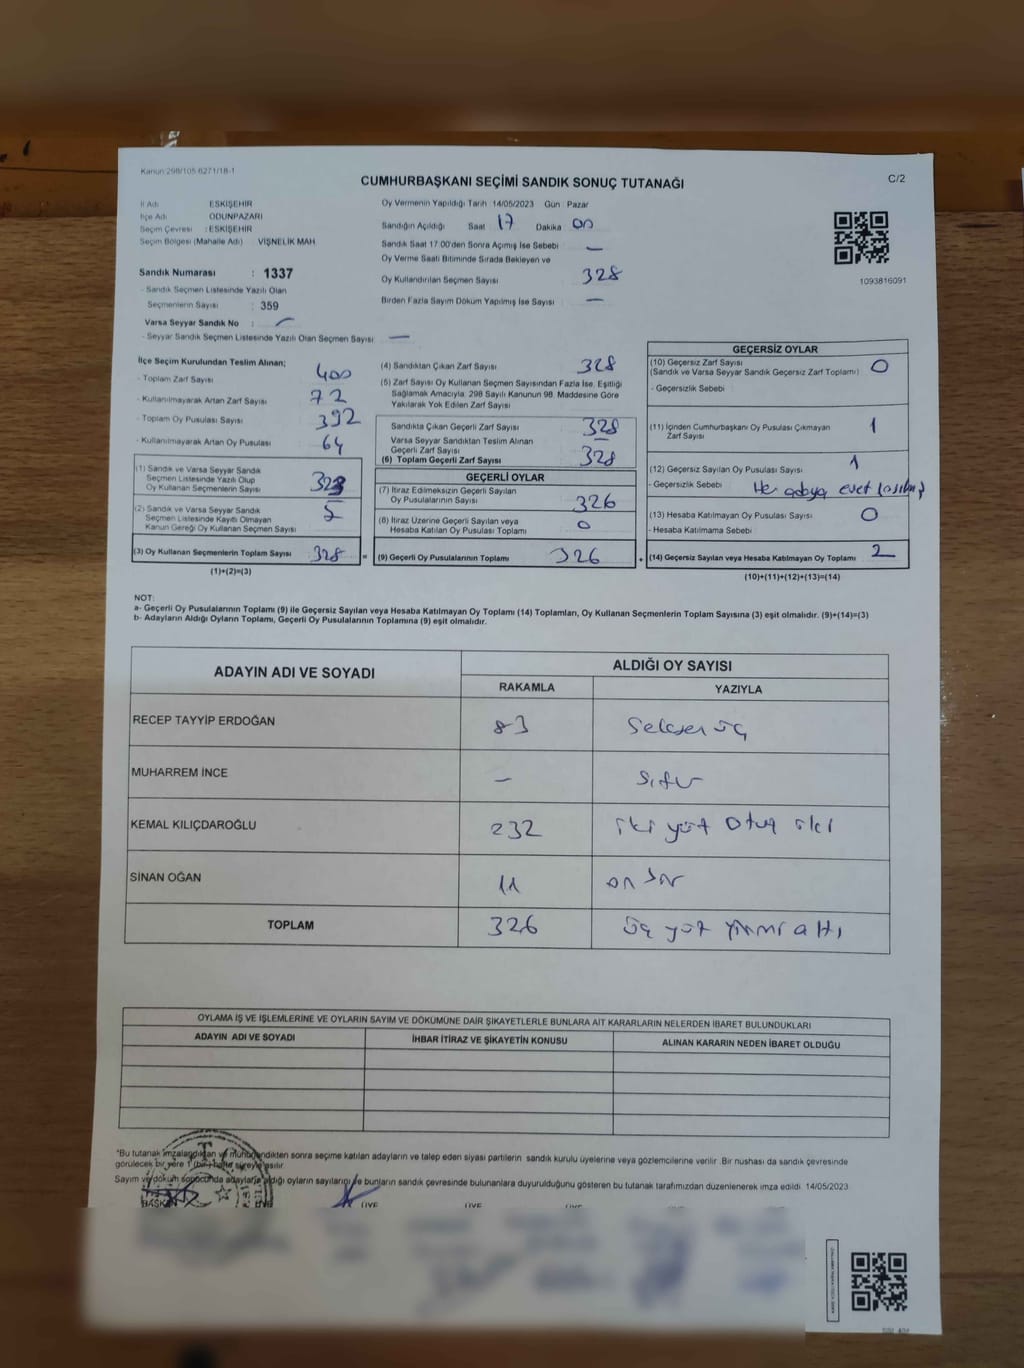 Kanun 298/105 6271/18-1
CUMHURBAŞKANI SEÇİMİ SANDIK SONUÇ TUTANAĞI
C/2
İl Adı : ESKİŞEHİR
İlçe Adı : ODUNPAZARI
Seçim Çevresi : ESKİŞEHİR
Seçim Bölgesi (Mahalle Adı) : VİŞNELİK MAH.
Sandık Numarası : 1337
- Sandık Seçmen Listesinde Yazılı Olan
Seçmenlerin Sayısı : 359
Varsa Seyyar Sandık No : —
- Seyyar Sandık Seçmen Listesinde Yazılı Olan Seçmen Sayısı: —
Oy Vermenin Yapıldığı Tarih 14/05/2023 Gün : Pazar
Sandığın Açıldığı Saat 17 Dakika 00
Sandık Saat 17.00'den Sonra Açımış İse Sebebi —
Oy Verme Saati Bitiminde Sırada Bekleyen ve
Oy Kullandırılan Seçmen Sayısı 328
Birden Fazla Sayım Döküm Yapılmış İse Sayısı —
1093816091
İlçe Seçim Kurulundan Teslim Alınan;
- Toplam Zarf Sayısı 400
- Kullanılmayarak Artan Zarf Sayısı 72
- Toplam Oy Pusulası Sayısı 392
- Kullanılmayarak Artan Oy Pusulası 64
(1) Sandık ve Varsa Seyyar Sandık
Seçmen Listesinde Yazılı Olup
Oy Kullanan Seçmenlerin Sayısı 323
(2) Sandık ve Varsa Seyyar Sandık
Seçmen Listesinde Kayıtlı Olmayan
Kanun Gereği Oy Kullanan Seçmen Sayısı 5
(3) Oy Kullanan Seçmenlerin Toplam Sayısı 328 =
(1)+(2)=(3)
(4) Sandıktan Çıkan Zarf Sayısı 328
(5) Zarf Sayısı Oy Kullanan Seçmen Sayısından Fazla İse, Eşitliği
Sağlamak Amacıyla, 298 Sayılı Kanunun 98. Maddesine Göre
Yakılarak Yok Edilen Zarf Sayısı
Sandıkta Çıkan Geçerli Zarf Sayısı 328
Varsa Seyyar Sandıktan Teslim Alınan
Geçerli Zarf Sayısı —
(6) Toplam Geçerli Zarf Sayısı 328
GEÇERLİ OYLAR
(7) İtiraz Edilmeksizin Geçerli Sayılan
Oy Pusulalarının Sayısı 326
(8) İtiraz Üzerine Geçerli Sayılan veya
Hesaba Katılan Oy Pusulası Toplamı 0
(9) Geçerli Oy Pusulalarının Toplamı 326 +
GEÇERSİZ OYLAR
(10) Geçersiz Zarf Sayısı
(Sandık ve Varsa Seyyar Sandık Geçersiz Zarf Toplamı) 0
- Geçersizlik Sebebi
(11) İçinden Cumhurbaşkanı Oy Pusulası Çıkmayan
Zarf Sayısı 1
(12) Geçersiz Sayılan Oy Pusulası Sayısı 1
- Geçersizlik Sebebi Her adaya evet
(13) Hesaba Katılmayan Oy Pusulası Sayısı 0
- Hesaba Katılmama Sebebi
(14) Geçersiz Sayılan veya Hesaba Katılmayan Oy Toplamı 2
(10)+(11)+(12)+(13)=(14)
NOT:
a- Geçerli Oy Pusulalarının Toplamı (9) ile Geçersiz Sayılan veya Hesaba Katılmayan Oy Toplamı (14) Toplamları, Oy Kullanan Seçmenlerin Toplam Sayısına (3) eşit olmalıdır. (9)+(14)=(3)
b- Adayların Aldığı Oyların Toplamı, Geçerli Oy Pusulalarının Toplamına (9) eşit olmalıdır.
ADAYIN ADI VE SOYADI
ALDIĞI OY SAYISI
RAKAMLA YAZIYLA
RECEP TAYYİP ERDOĞAN 83 Seksen üç
MUHARREM İNCE — Sıfır
KEMAL KILIÇDAROĞLU 232 iki yüz otuz iki
SİNAN OĞAN 11 on bir
TOPLAM 326 üç yüz yirmi altı
OYLAMA İŞ VE İŞLEMLERİNE VE OYLARIN SAYIM VE DÖKÜMÜNE DAİR ŞİKAYETLERLE BUNLARA AİT KARARLARIN NELERDEN İBARET BULUNDUKLARI
ADAYIN ADI VE SOYADI İHBAR İTİRAZ VE ŞİKAYETİN KONUSU ALINAN KARARIN NEDEN İBARET OLDUĞU
*Bu tutanak imzalandıktan ve mühürlendikten sonra seçime katılan adayların ve talep eden siyasi partilerin sandık kurulu üyelerine veya gözlemcilerine verilir. Bir nüshası da sandık çevresinde
görülecek bir yere 1 (bir) hafta süreyle asılır.
Sayım ve döküm sonucunda adayların aldığı oyların sayılarını ve bunların sandık çevresinde bulunanlara duyurulduğunu gösteren bu tutanak tarafımızdan düzenlenerek imza edildi. 14/05/2023
BAŞKAN ÜYE ÜYE ÜYE